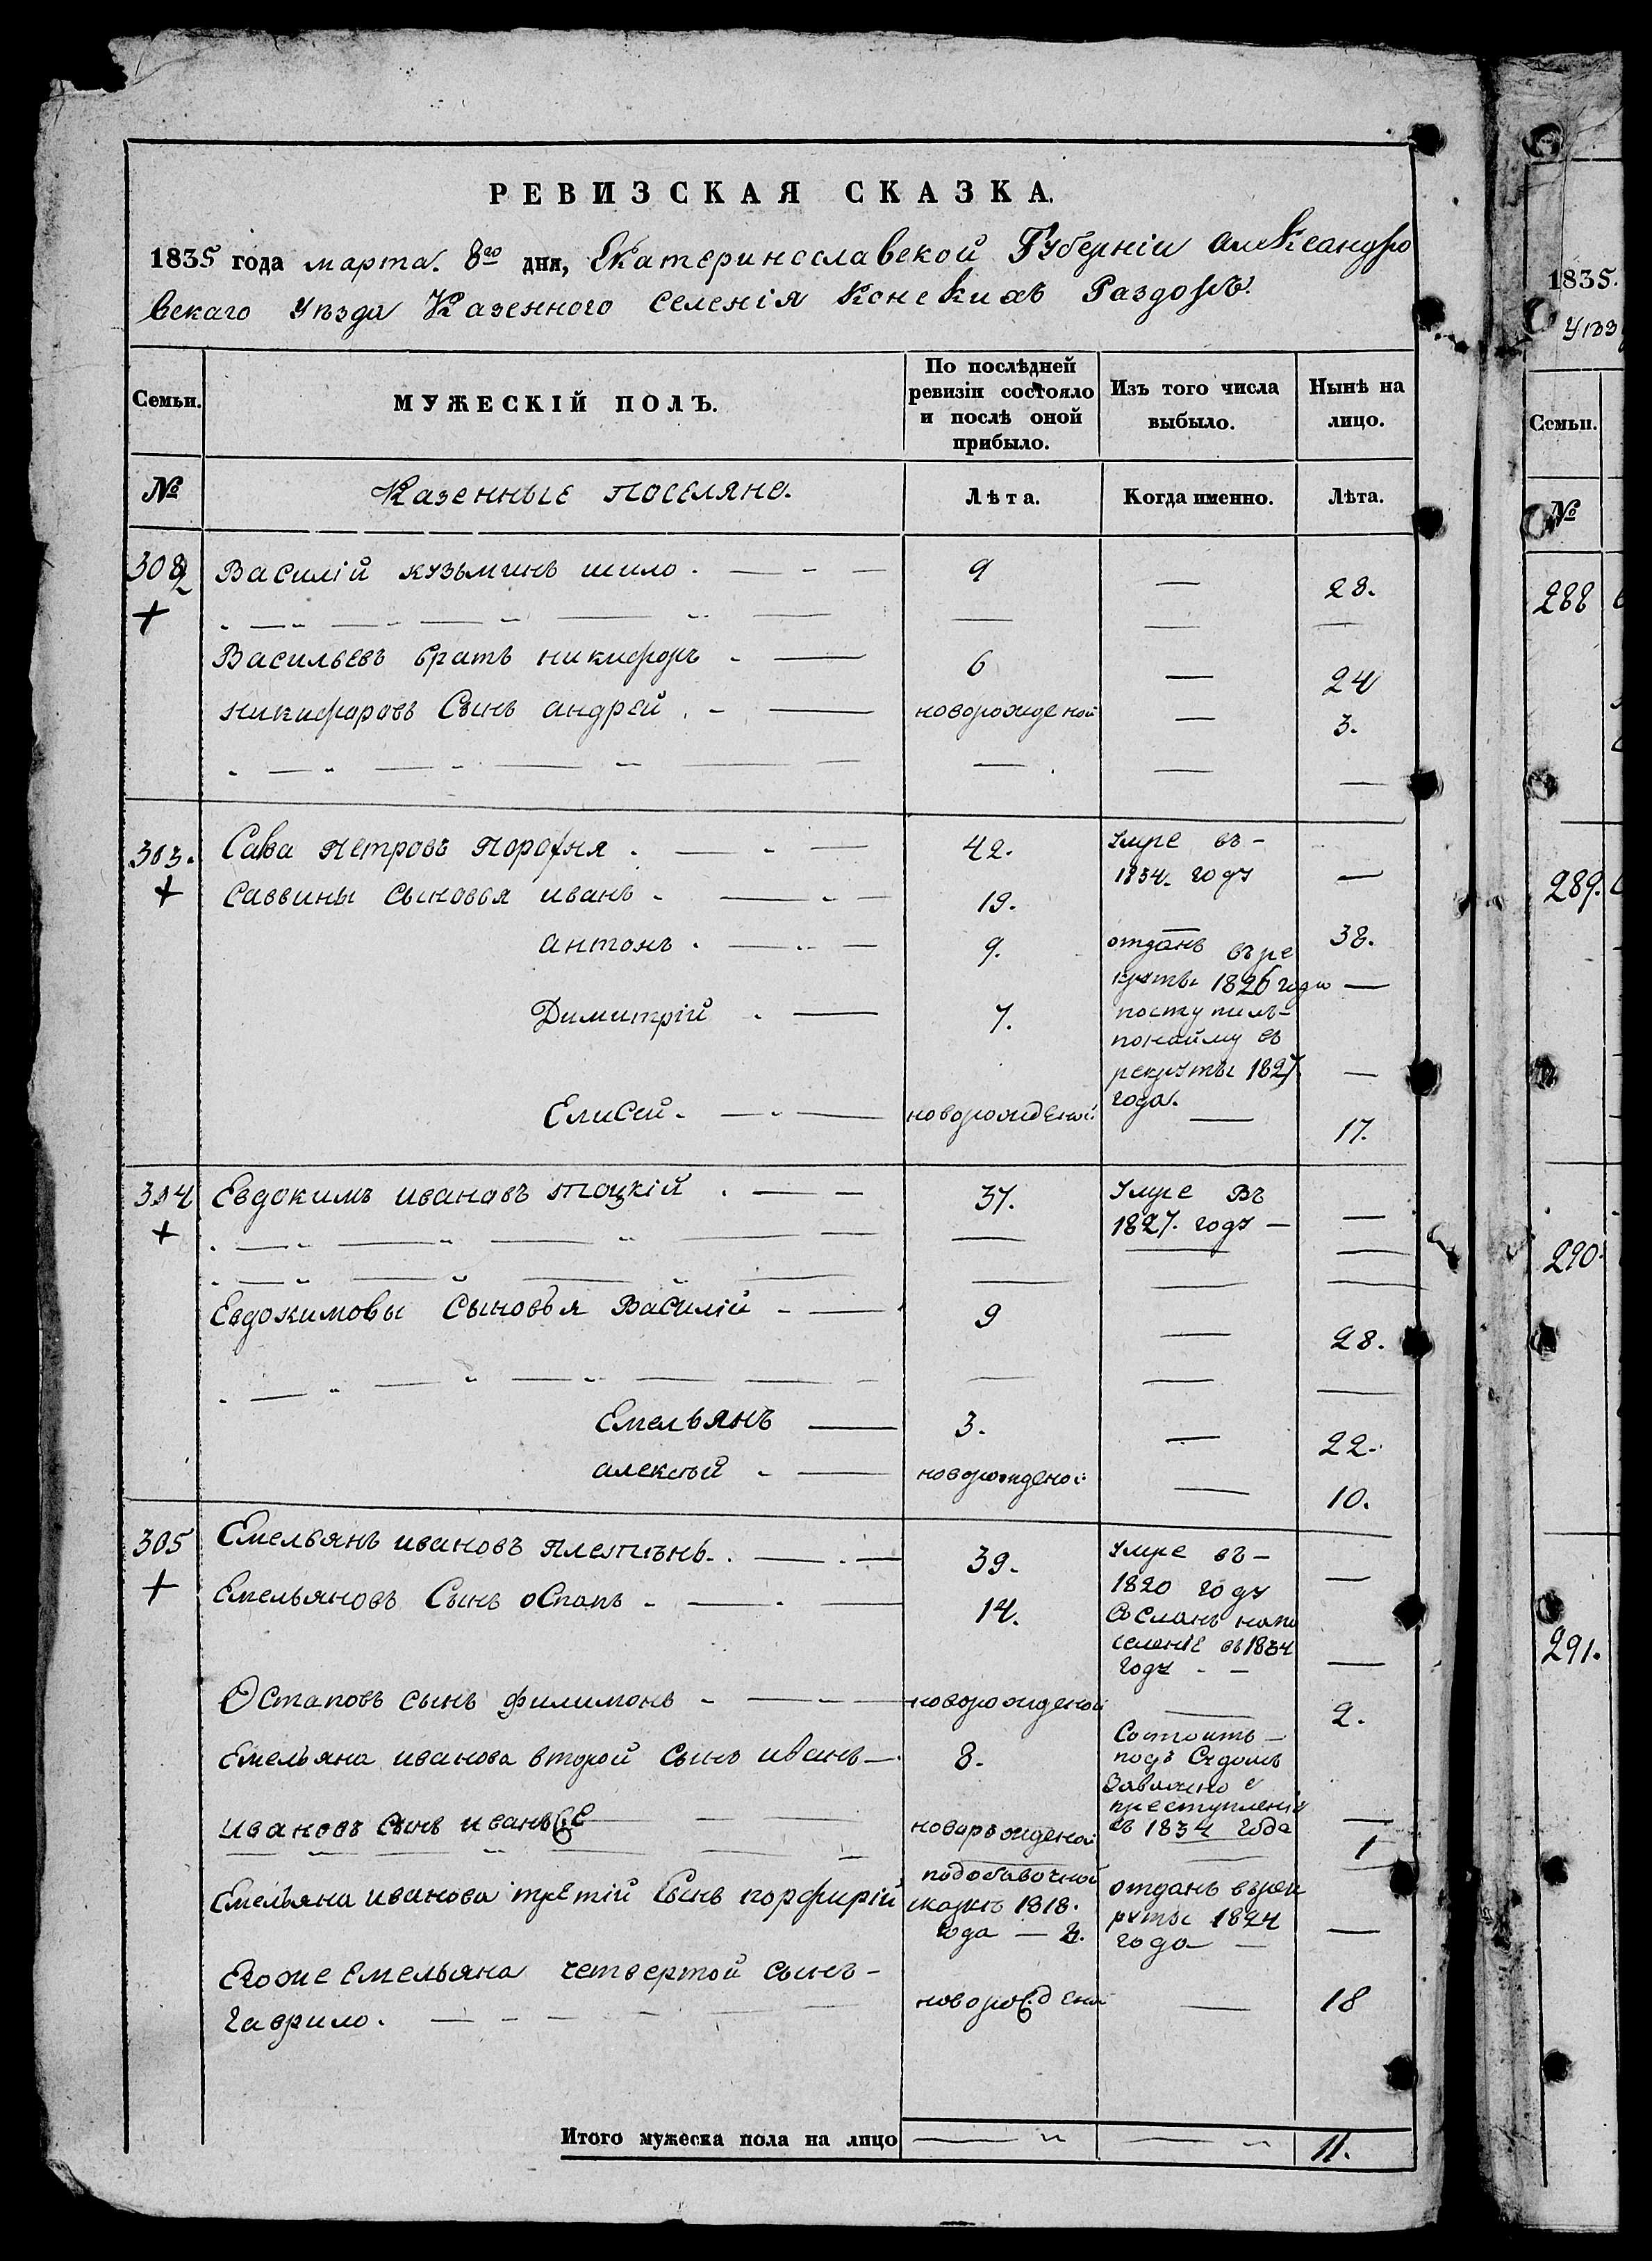 РЕВИЗСКАЯ СКАЗКА.
1835 года марта. 8го дня, Екатеринославской Губерніи александро
вскаго уѣзда Казенного селенія Конскихъ Раздоръ.
Семьи. МУЖЕСКІЙ ПОЛЪ. По послѣдней ревизіи состояло и послѣ оной прибыло. Изъ того числа выбыло. Нынѣ на лицо.
№ Казенные поселяне. Лѣта. Когда именно. Лѣта.
302 Василій кузьминъ шило. — 9 — 28.
+
Васильевъ братъ никифоръ — 6 — 24
никифоровъ Сынъ андрей — новорожденой — 3.
303. Сава петровъ порохня. — 42. умре въ —
1834. году —
+ саввины сыновья иванъ — 19. — 38.
антонъ. — 9. отданъ въ ре
круты 1826 года —
Димитрій — 7. поступилъ
понайму въ
рекруты 1827 —
года.
Елисей. — новорожденой — 17.
304 Евдокимъ ивановъ тоцкій. — 37. умре Въ
+ 1827. году — —
Евдокимовы Сыновья Василій — 9 — 28.
Емельянъ — 3. — 22.
алексѣй — новорожденой — 10.
305 Емельянъ ивановъ плетѣнь. — 39. умре въ —
+ 1820 году —
Емельяновъ Сынъ оСтапъ — 14. Сосланъ напо
селеніе въ 1834
году — —
Остаповъ сынъ филимонъ — новорожденой — 2.
Емельяна иванова второй сынъ иванъ — 8. Состоитъ —
подъ Судомъ
преступленія
въ 1834 года —
ивановъ сынъ иванъ — новорожденой — 1
Емельяна иванова третій Сынъ порфирій подобавочной
сказкѣ 1818.
года — отданъ въ рек
руты 1824
года — —
Егоже Емельяна четвертой сынъ —
гаврило. — — 18
Итого мужеска пола на лицо — — 11.
1835.
уѣз
Семьи.
№
288
289.
290.
291.